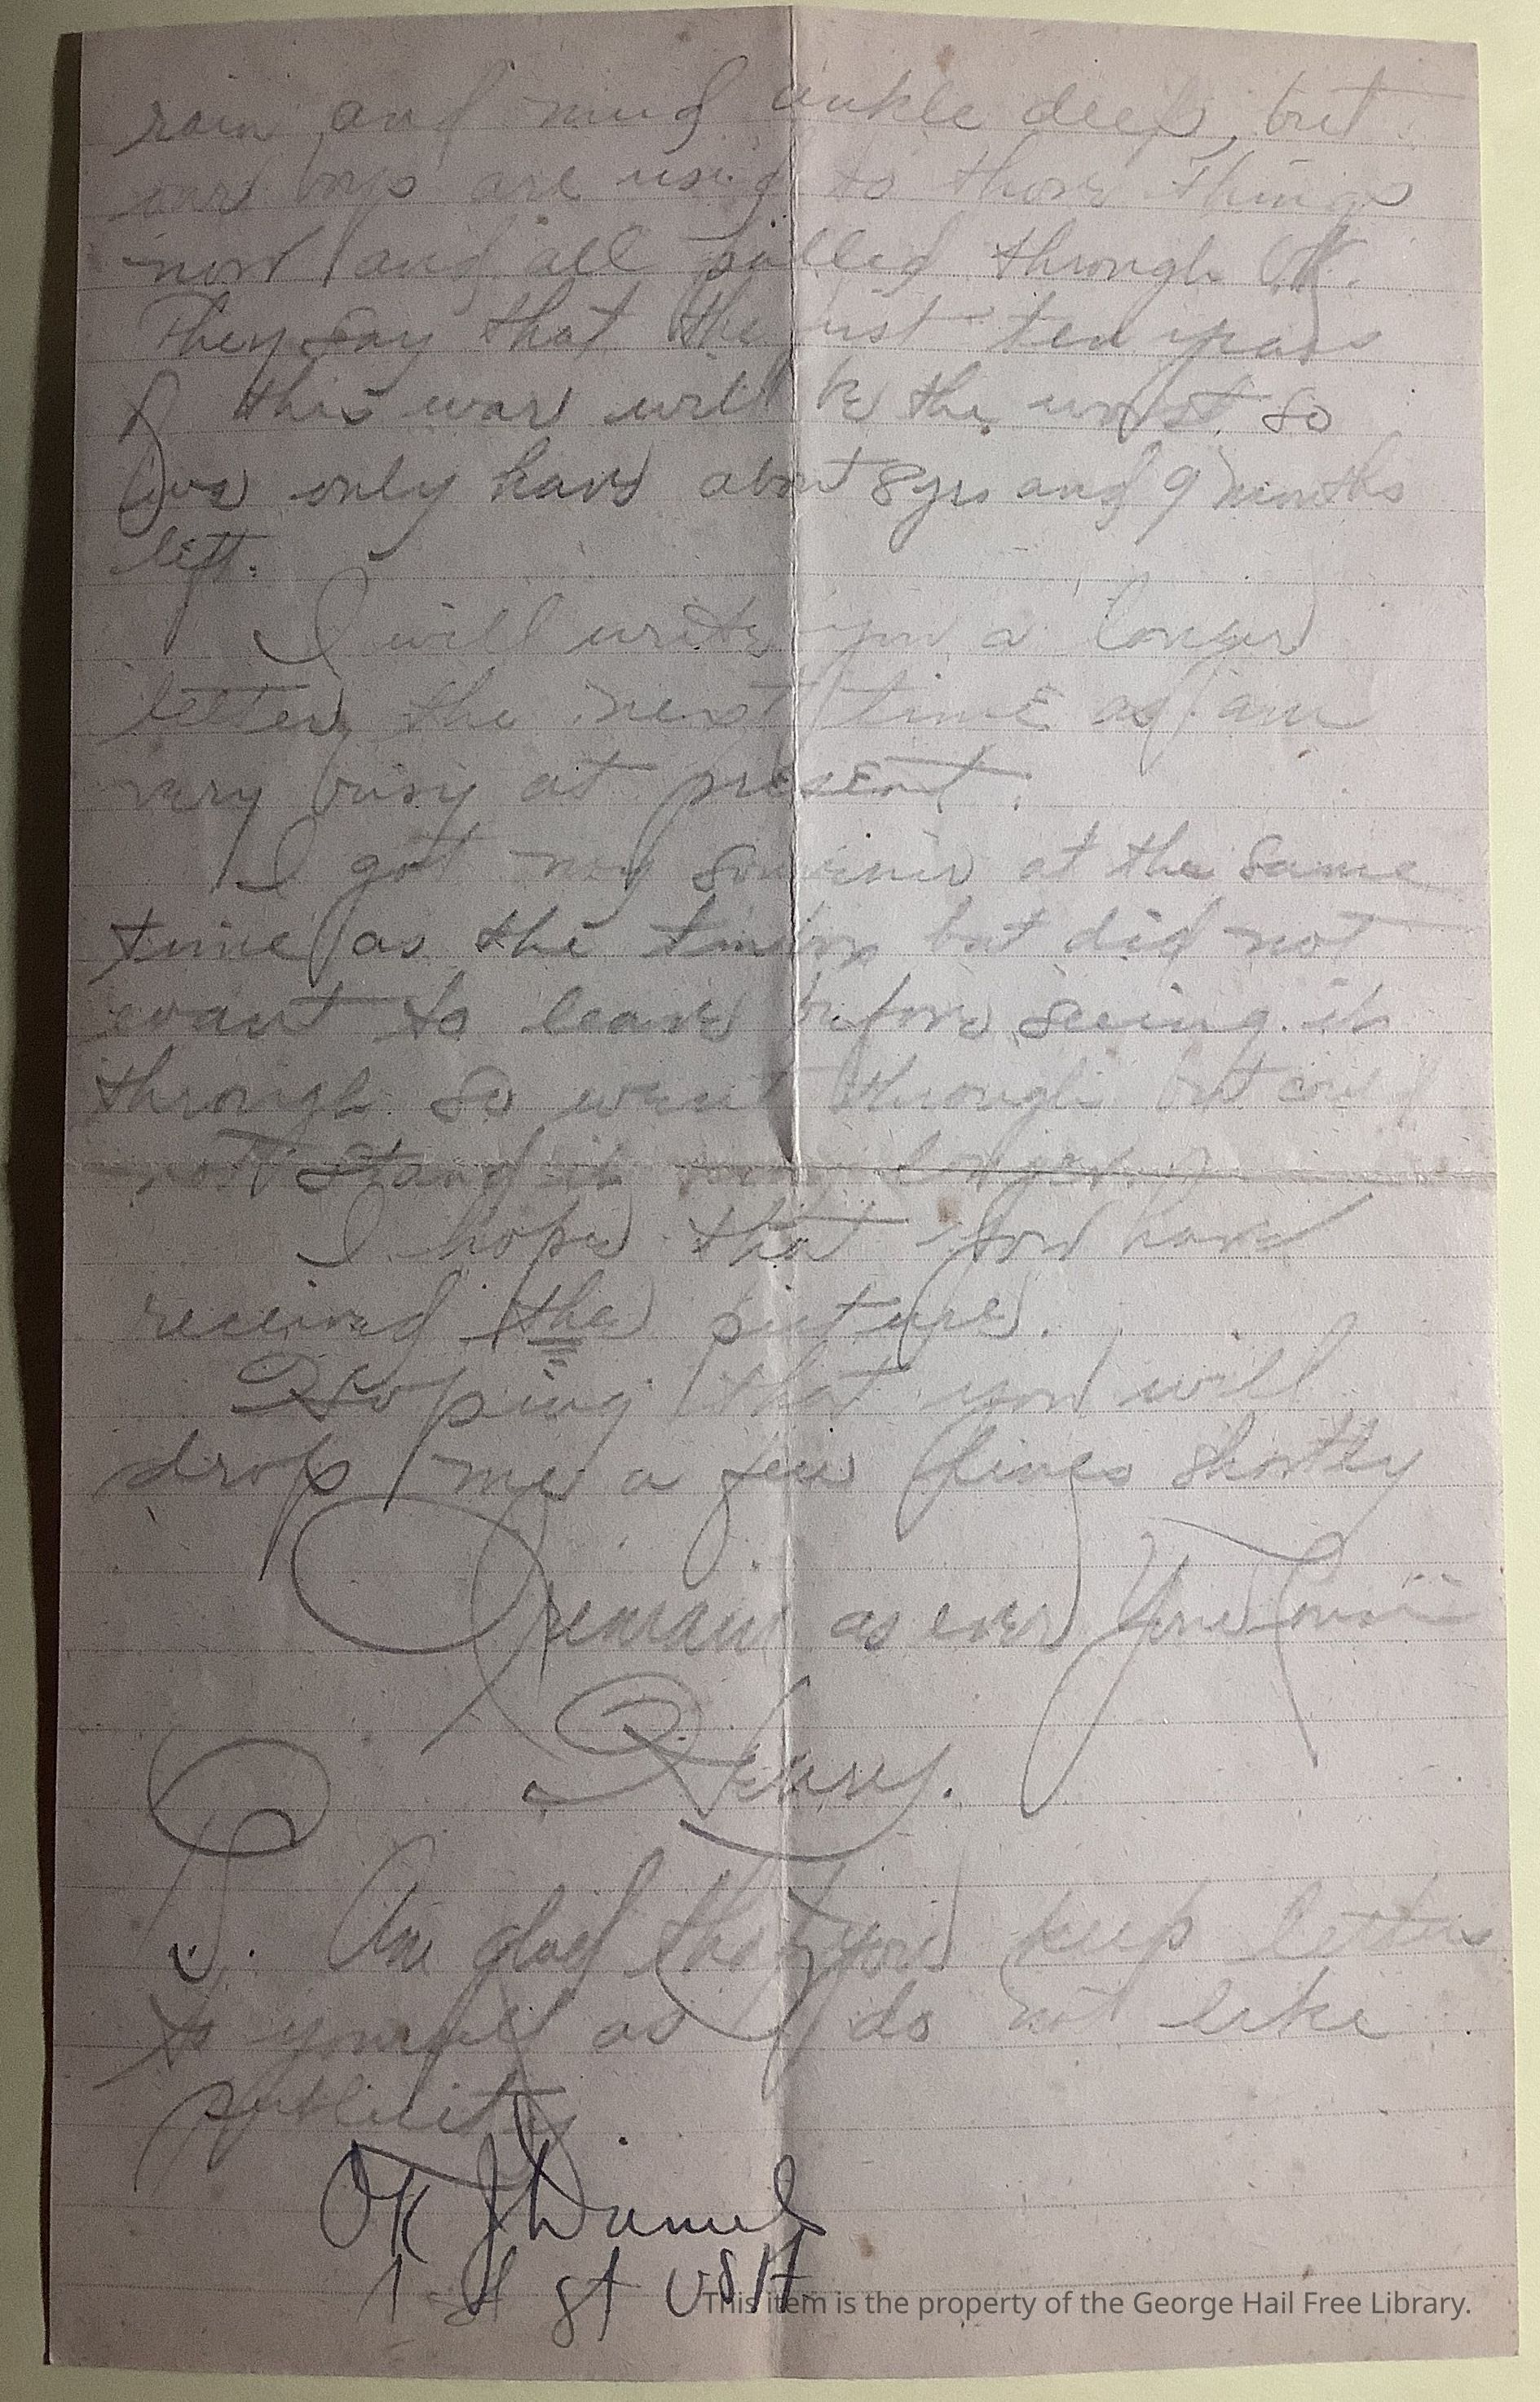 rain and mud ankle deep, but
our boys are used to those things
now and all pulled through OK.
They say that the 1st ten years
of this war will be the worst so
we only have about 8 yrs and 9 months
left.
I will write you a longer
letter the next time as I am
very busy at present.
I got my souvenir at the same
time as the but did not
want to leave before seeing it
through so went through but could
not stand it any longer.
I hope that you have
received the picture.
Hoping that you will
drop me a few lines shortly
I remain as ever Your Cousin
Harry.
P.S. Am glad that you keep letters
to yourself as I do not like
publicity.
OK J Daniels
1st Lt USA
This item is the property of the George Hail Free Library.